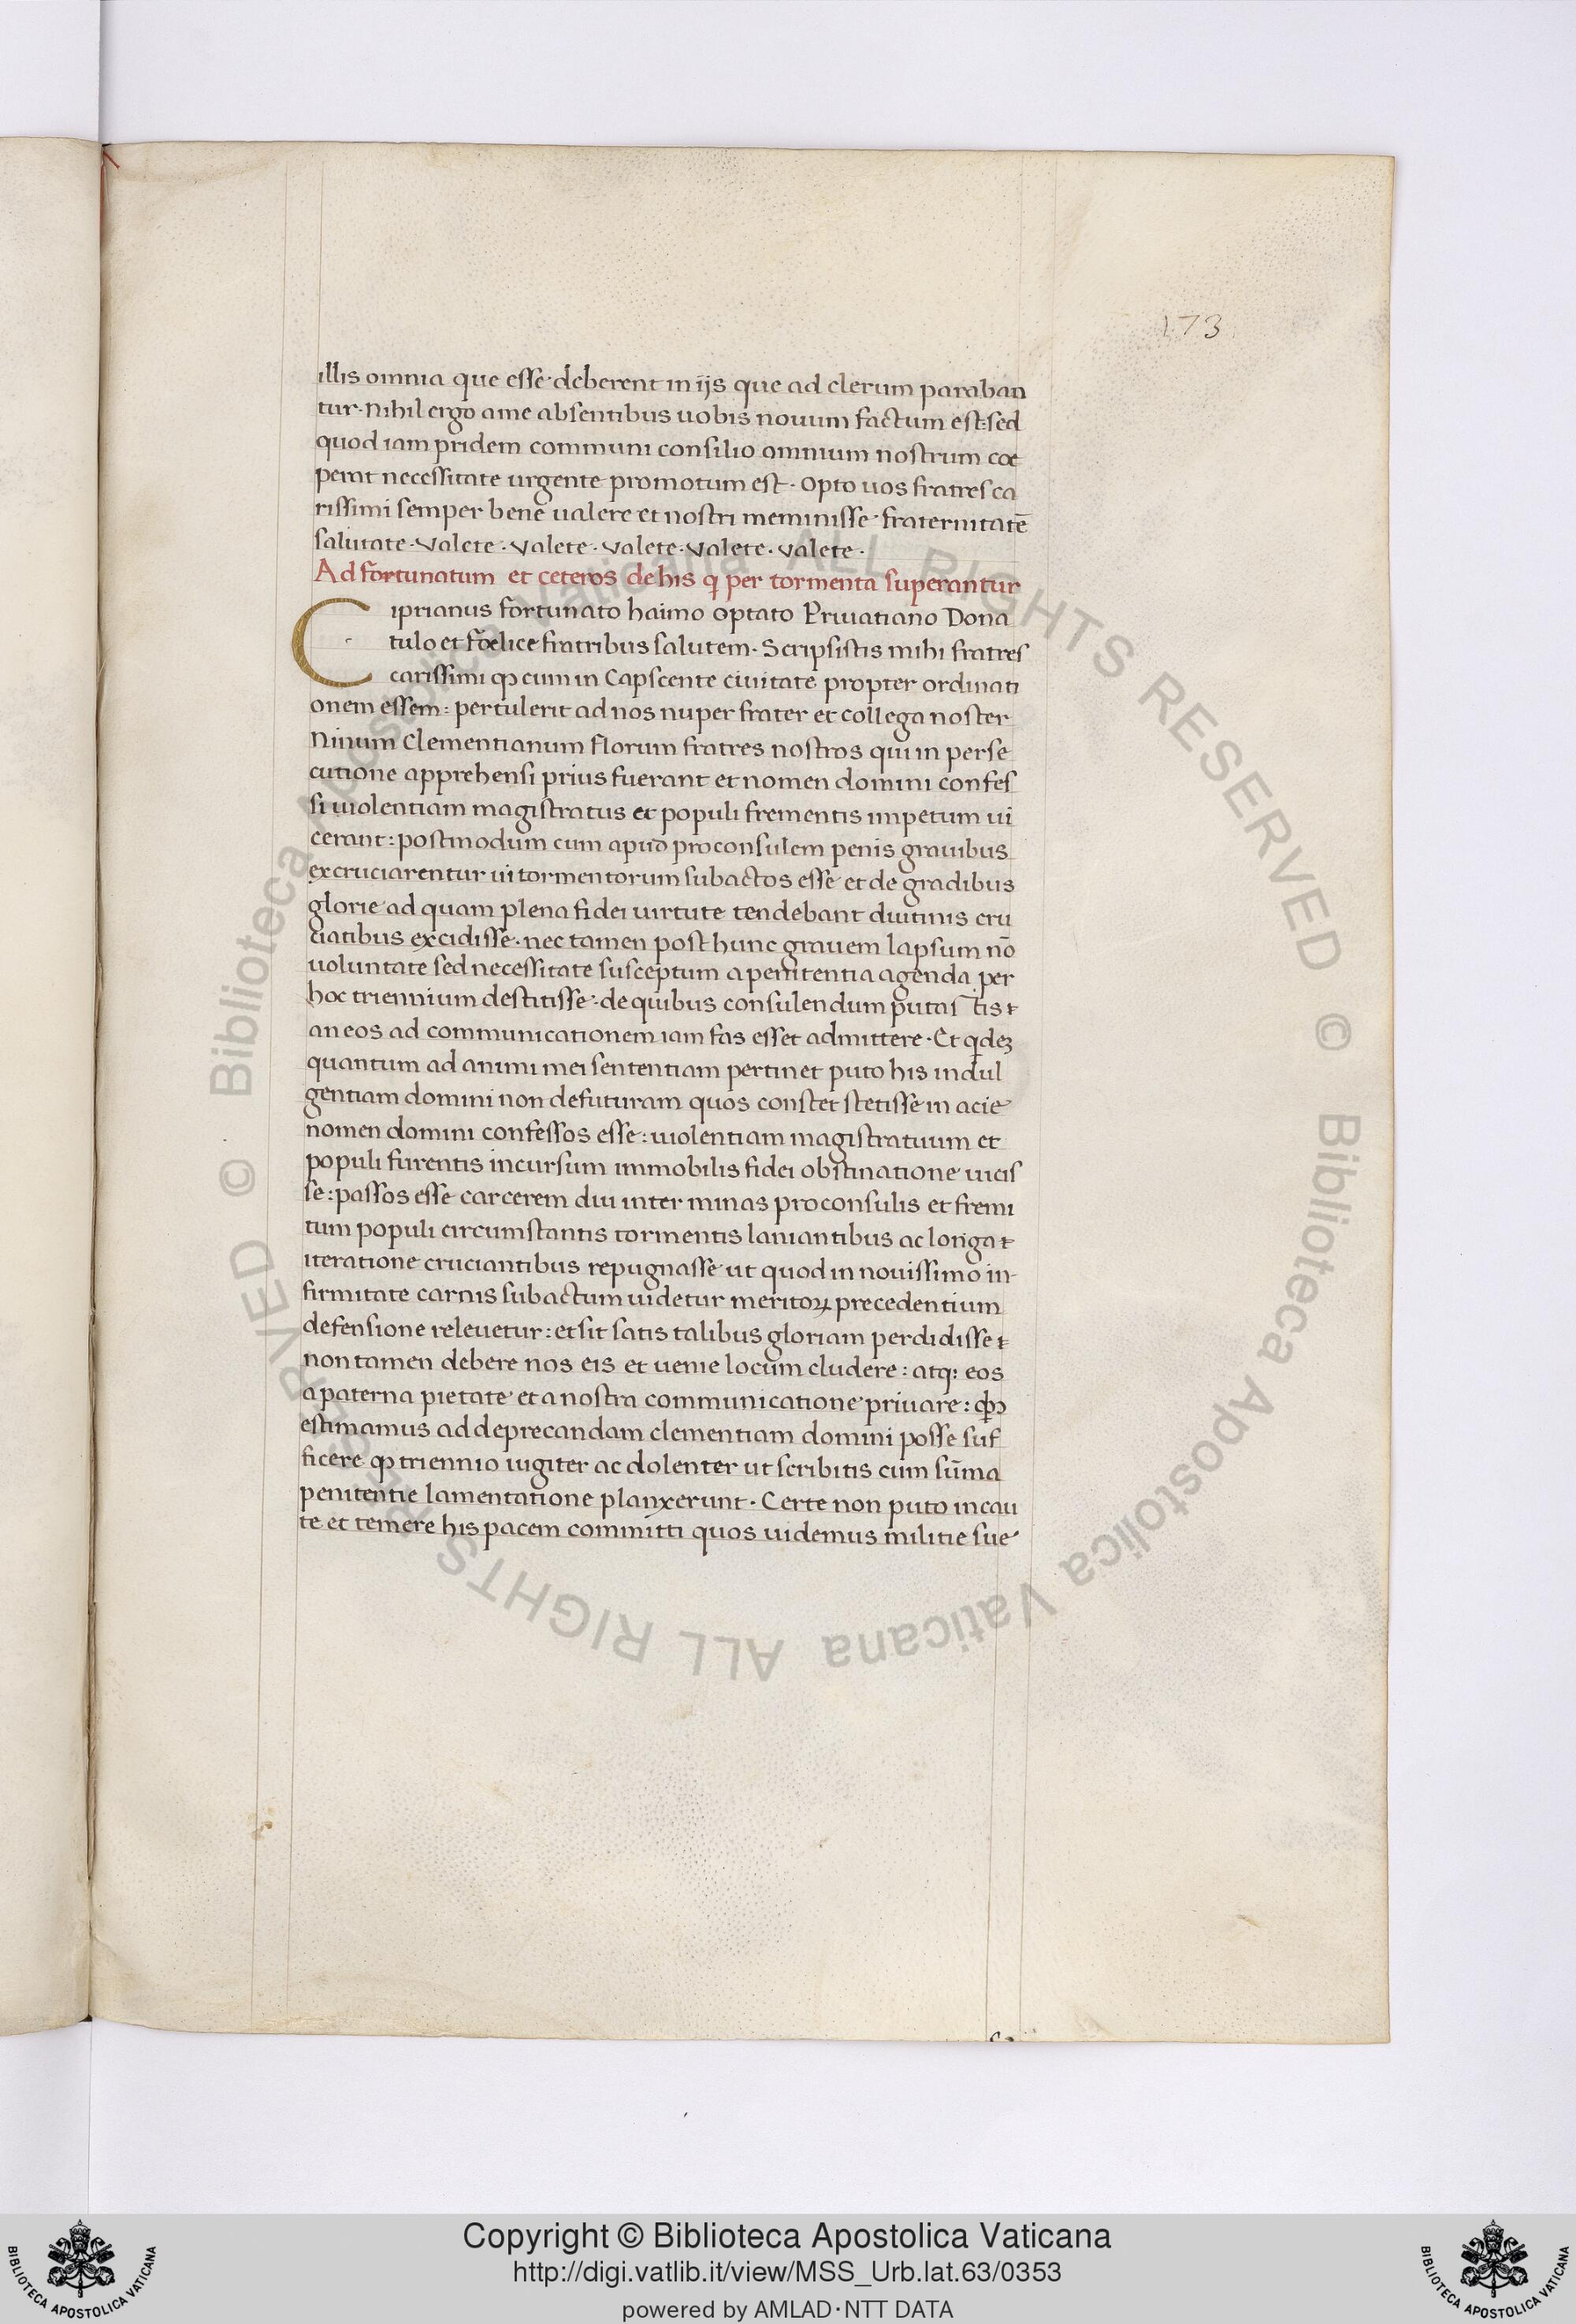 173
illis omnia que esse deberent in ijs que ad clerum paraban
tur. Nihil ergo a me absentibus uobis nouum factum est: sed
quod iam pridem communi consilio omnium nostrum coe
perat necessitate urgente promotum est. Opto uos fratres ca
rissimi semper bene ualere et nostri meminisse fraternitatē
salutate. Valete. Valete. Valete. Valete. Valete.
Ad fortunatum et ceteros de his q per tormenta superantur
Ciprianus fortunato haimo optato Priuatiano Dona
tulo et foelice fratribus salutem. Scripsistis mihi fratres
carissimi ꝙ cum in Capscente ciuitate propter ordinati
onem essem: pertulerit ad nos nuper frater et collega noster
Ninum Clementianum florum fratres nostros qui in perse
cutione apprehensi prius fuerant et nomen domini confes
si uiolentiam magistratus et populi frementis impetum ui
cerant: postmodum cum apud proconsulem penis grauibus
excruciarentur ui tormentorum subactos esse et de gradibus
glorie ad quam plena fidei uirtute tendebant diutinis cru
ciatibus excidisse. nec tamen post hunc grauem lapsum nō
uoluntate sed necessitate susceptum a penitentia agenda per
hoc triennium destitisse: de quibus consulendum putas tis
an eos ad communicationem iam fas esset admittere. Et qdeꝫ
quantum ad animi mei sententiam pertinet puto his indul
gentiam domini non defuturam quos constet stetisse in acie
nomen domini confessos esse: uiolentiam magistratuum et
populi furentis incursum immobilis fidei obstinatione uicis
se: passos esse carcerem diu inter minas proconsulis et fremi
tum populi circumstantis tormentis laniantibus ac longa
iteratione cruciantibus repugnasse ut quod in nouissimo in-
firmitate carnis subactum uidetur meritoꝝ precedentium
defensione releuetur: et sit satis talibus gloriam perdidisse
non tamen debere nos eis et uenie locum cludere: atq; eos
a paterna pietate et a nostra communicatione priuare: ꝙ
estimamus ad deprecandam clementiam domini posse suf
ficere ꝙ triennio iugiter ac dolenter ut scribitis cum sūma
penitentie lamentatione planxerunt. Certe non puto incau
te et temere his pacem committi quos uidemus militie sue
Copyright © Biblioteca Apostolica Vaticana
http://digi.vatlib.it/view/MSS_Urb.lat.63/0353
powered by AMLAD·NTT DATA
BIBLIOTECA APOSTOLICA VATICANA
BIBLIOTECA APOSTOLICA VATICANA
© Biblioteca Apostolica Vaticana ALL RIGHTS RESERVED
© Biblioteca Apostolica Vaticana ALL RIGHTS RESERVED